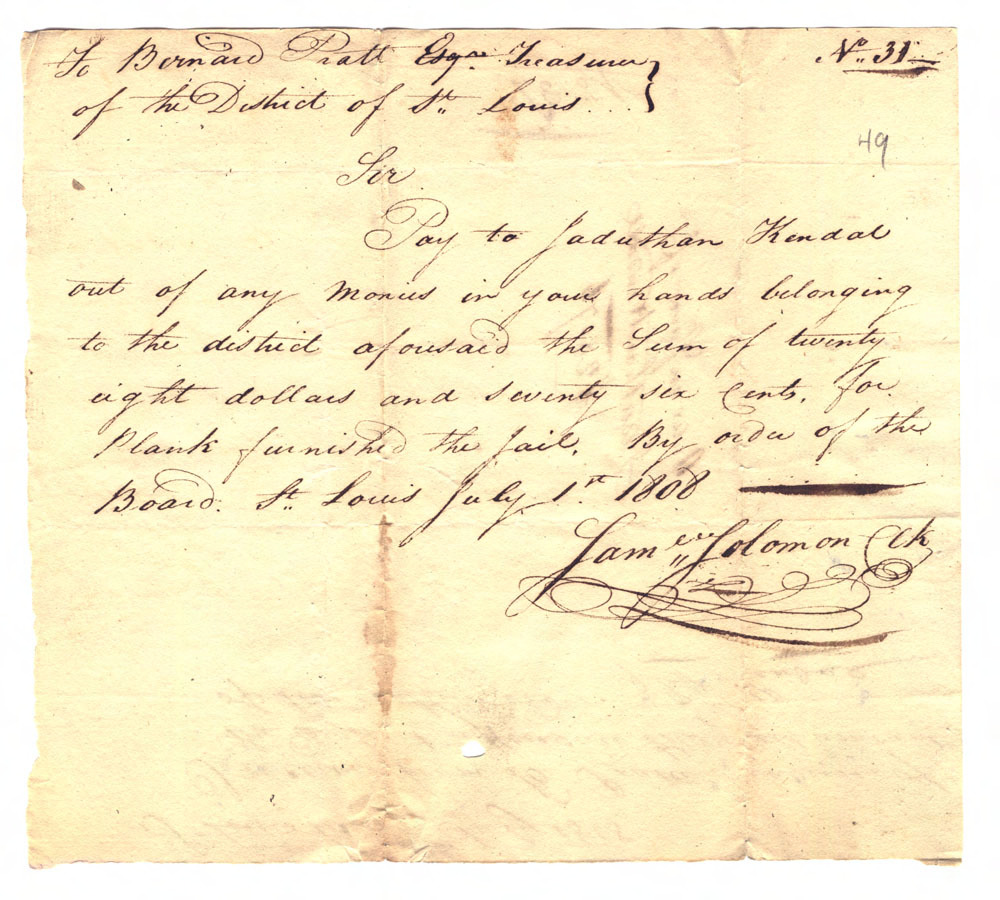 To Bernard Pratt Esqre. Treasurer
of the District of St. Louis
No. 31
49
Sir
Pay to Jaduthan Kendal
out of any Monies in your hands belonging
to the district aforesaid the Sum of twenty
eight dollars and seventy six Cents, for
Plank furnished the Jail. By order of the
Board. St. Louis July 1st. 1808
Saml. Solomon Clk